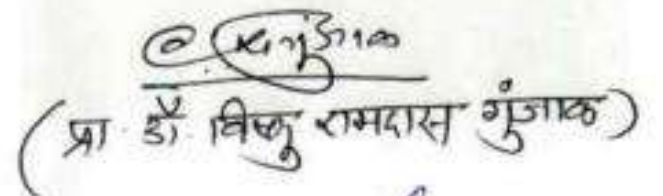 (प्रा. डॉ. विष्णु रामदास गुंजाळ)